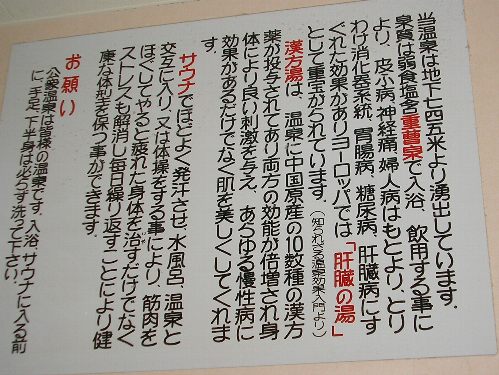 当温泉は地下七四五米より湧出しています。
泉質は弱食塩含重曹泉で入浴、飲用する事に
より、皮小病、神経痛、婦人病はもとより、とり
わけ消化器系統、胃腸病、糖尿病、肝臓病にす
ぐれた効果がありヨーロッパでは「肝臓の湯」
として重宝がられています。(知られざる温泉効果入門より)
漢方湯は、温泉に中国原産の10数種の漢方
薬が投与されてあり両方の効能が倍増され身
体により良い刺激を与え、あらゆる慢性病に
効果があるだけでなく肌を美しくしてくれま
す。
サウナでほどよく発汗させ、水風呂、温泉と
交互に入り、又は体操をする事により、筋肉を
ほぐしてやると疲れた身体を治すだけでなく
ストレスも解消し毎日繰り返すことにより健
康な体型を保つ事ができます。
お願い
公衆温泉は皆様の温泉です。入浴、サウナに入る前
に、手足、下半身は必らず洗って下さい。